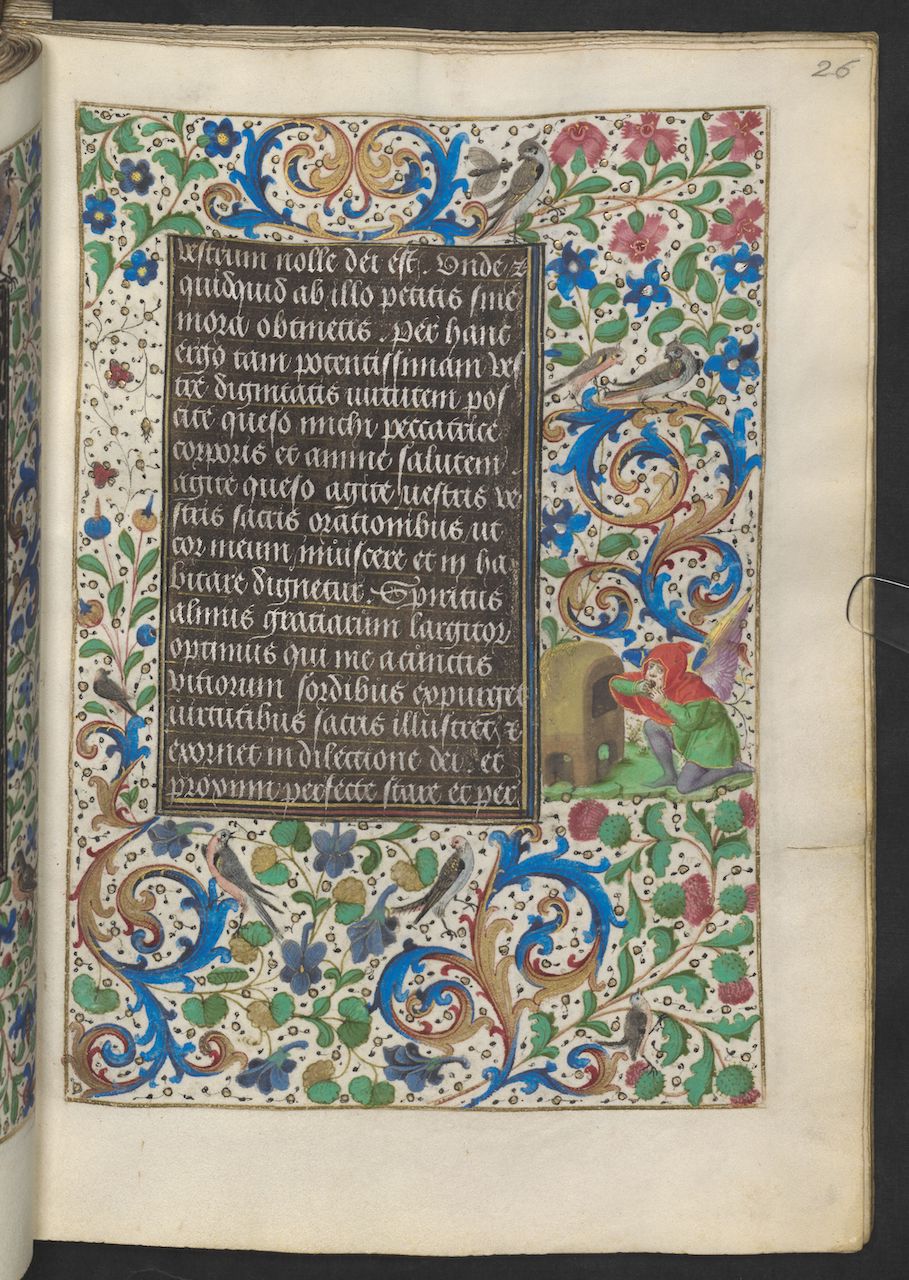 26
vestrum nolle dei est. Vnde z
quidquid ab illo petitis sine
mora obtinetis. Per hanc
ergo tam potentissimam ves
tre dignitatis uirtutem pos
cite queso michi peccatrice
corporis et anime salutem
agite queso agite uestris ve
stris sacris orationibus ut
cor meum inuiscere et in ha
bitare dignetur. Spiritus
almus gratiarum largitor
optimus qui me a cunctis
vitiorum sordibus expurget
uirtutibus sacris illustret z
exornet in dilectione dei. et
proximi perfecte stare et per